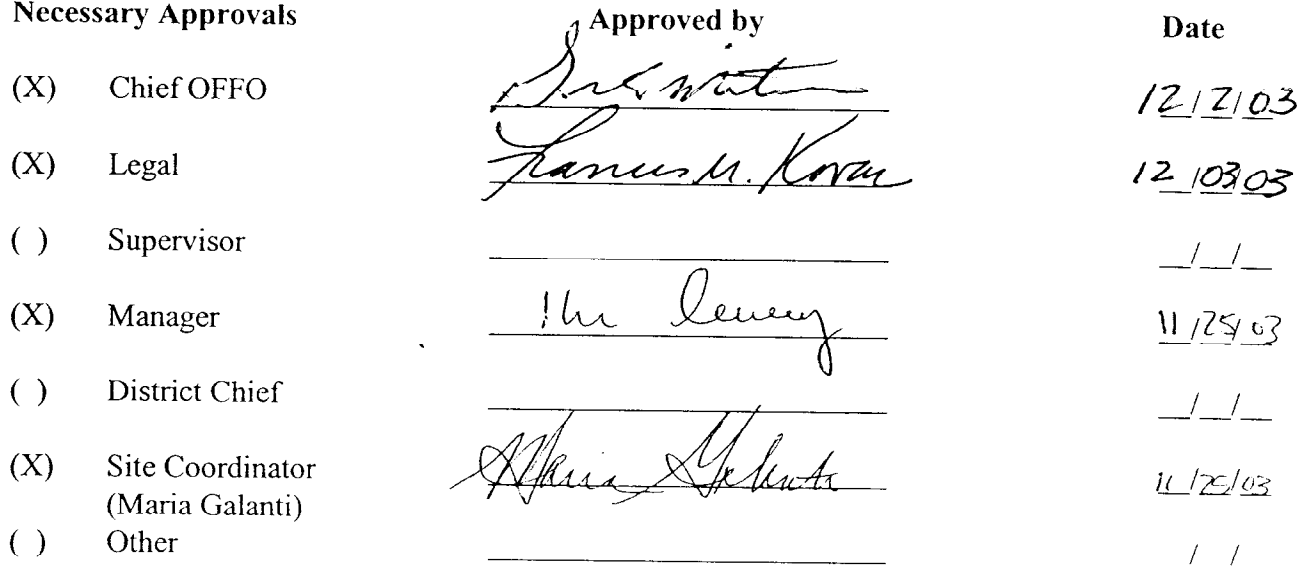 Necessary Approvals Approved by Date
(X) Chief OFFO 12/2/03
(X) Legal Francis M. Kovac 12/03/03
( ) Supervisor __/__/__
(X) Manager 11/25/03
( ) District Chief __/__/__
(X) Site Coordinator Maria Galanti 11/25/03
(Maria Galanti)
( ) Other / /